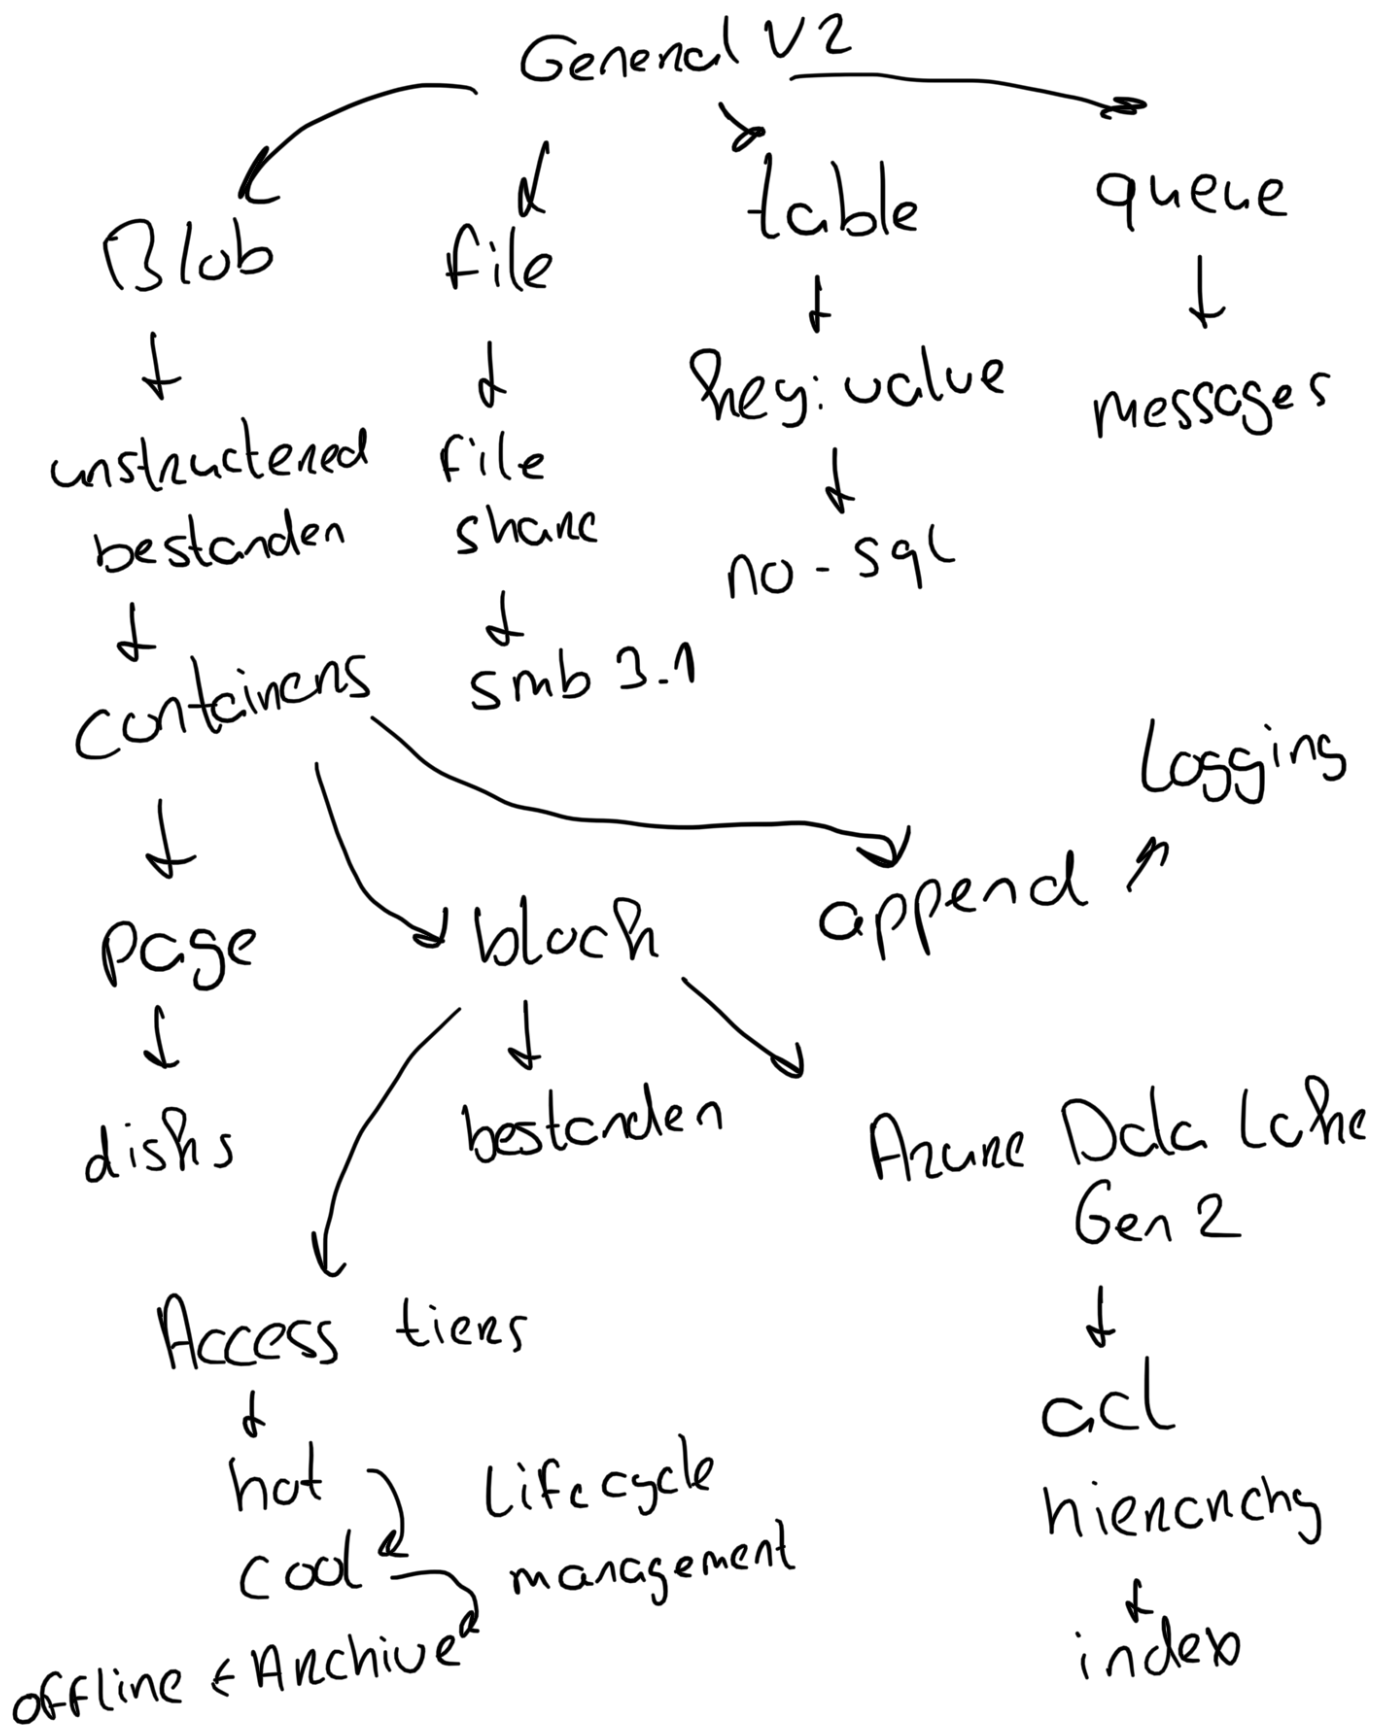 General V2
Blob
file
table
queue
unstructered
bestanden
file
share
key: value
messages
no-sql
containers
smb 3.1
Logging
page
block
append
disks
bestanden
Azure Data Lake
Gen 2
Access tiers
acl
hot
Lifecycle
hierarchy
cool
management
index
offline
Archive